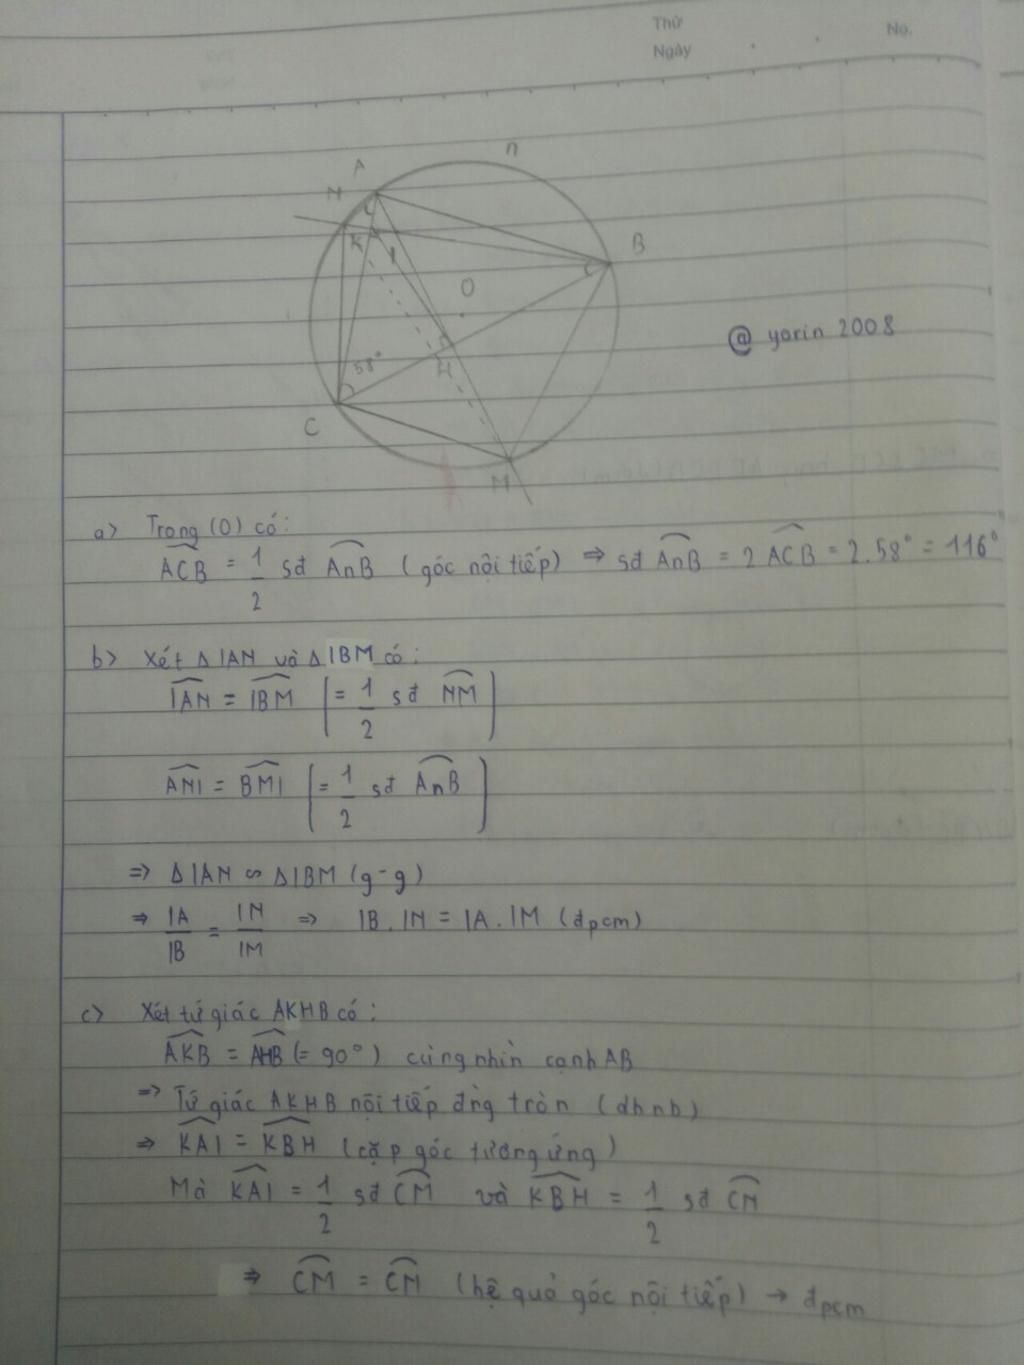 Thứ
Ngày
No.
A
n
N
K
I
B
O
@ yorin 2008
58°
H
C
M
a> Trong (O) có:
ACB = 1/2 sđ AnB (góc nội tiếp) ⇒ sđ AnB = 2 ACB = 2.58° = 116°
b> Xét ΔIAN và ΔIBM có:
IAN = IBM (= 1/2 sđ NM)
ANI = BMI (= 1/2 sđ AnB)
=> ΔIAN ∽ ΔIBM (g-g)
⇒ IA/IB = IN/IM ⇒ IB.IN = IA.IM (đpcm)
c> Xét tứ giác AKHB có:
AKB = AHB (= 90°) cùng nhìn cạnh AB
=> Tứ giác AKHB nội tiếp đng tròn (dhnb)
⇒ KAI = KBH (cặp góc tương ứng)
Mà KAI = 1/2 sđ CM và KBH = 1/2 sđ CN
⇒ CM = CN (hệ quả góc nội tiếp) → đpcm